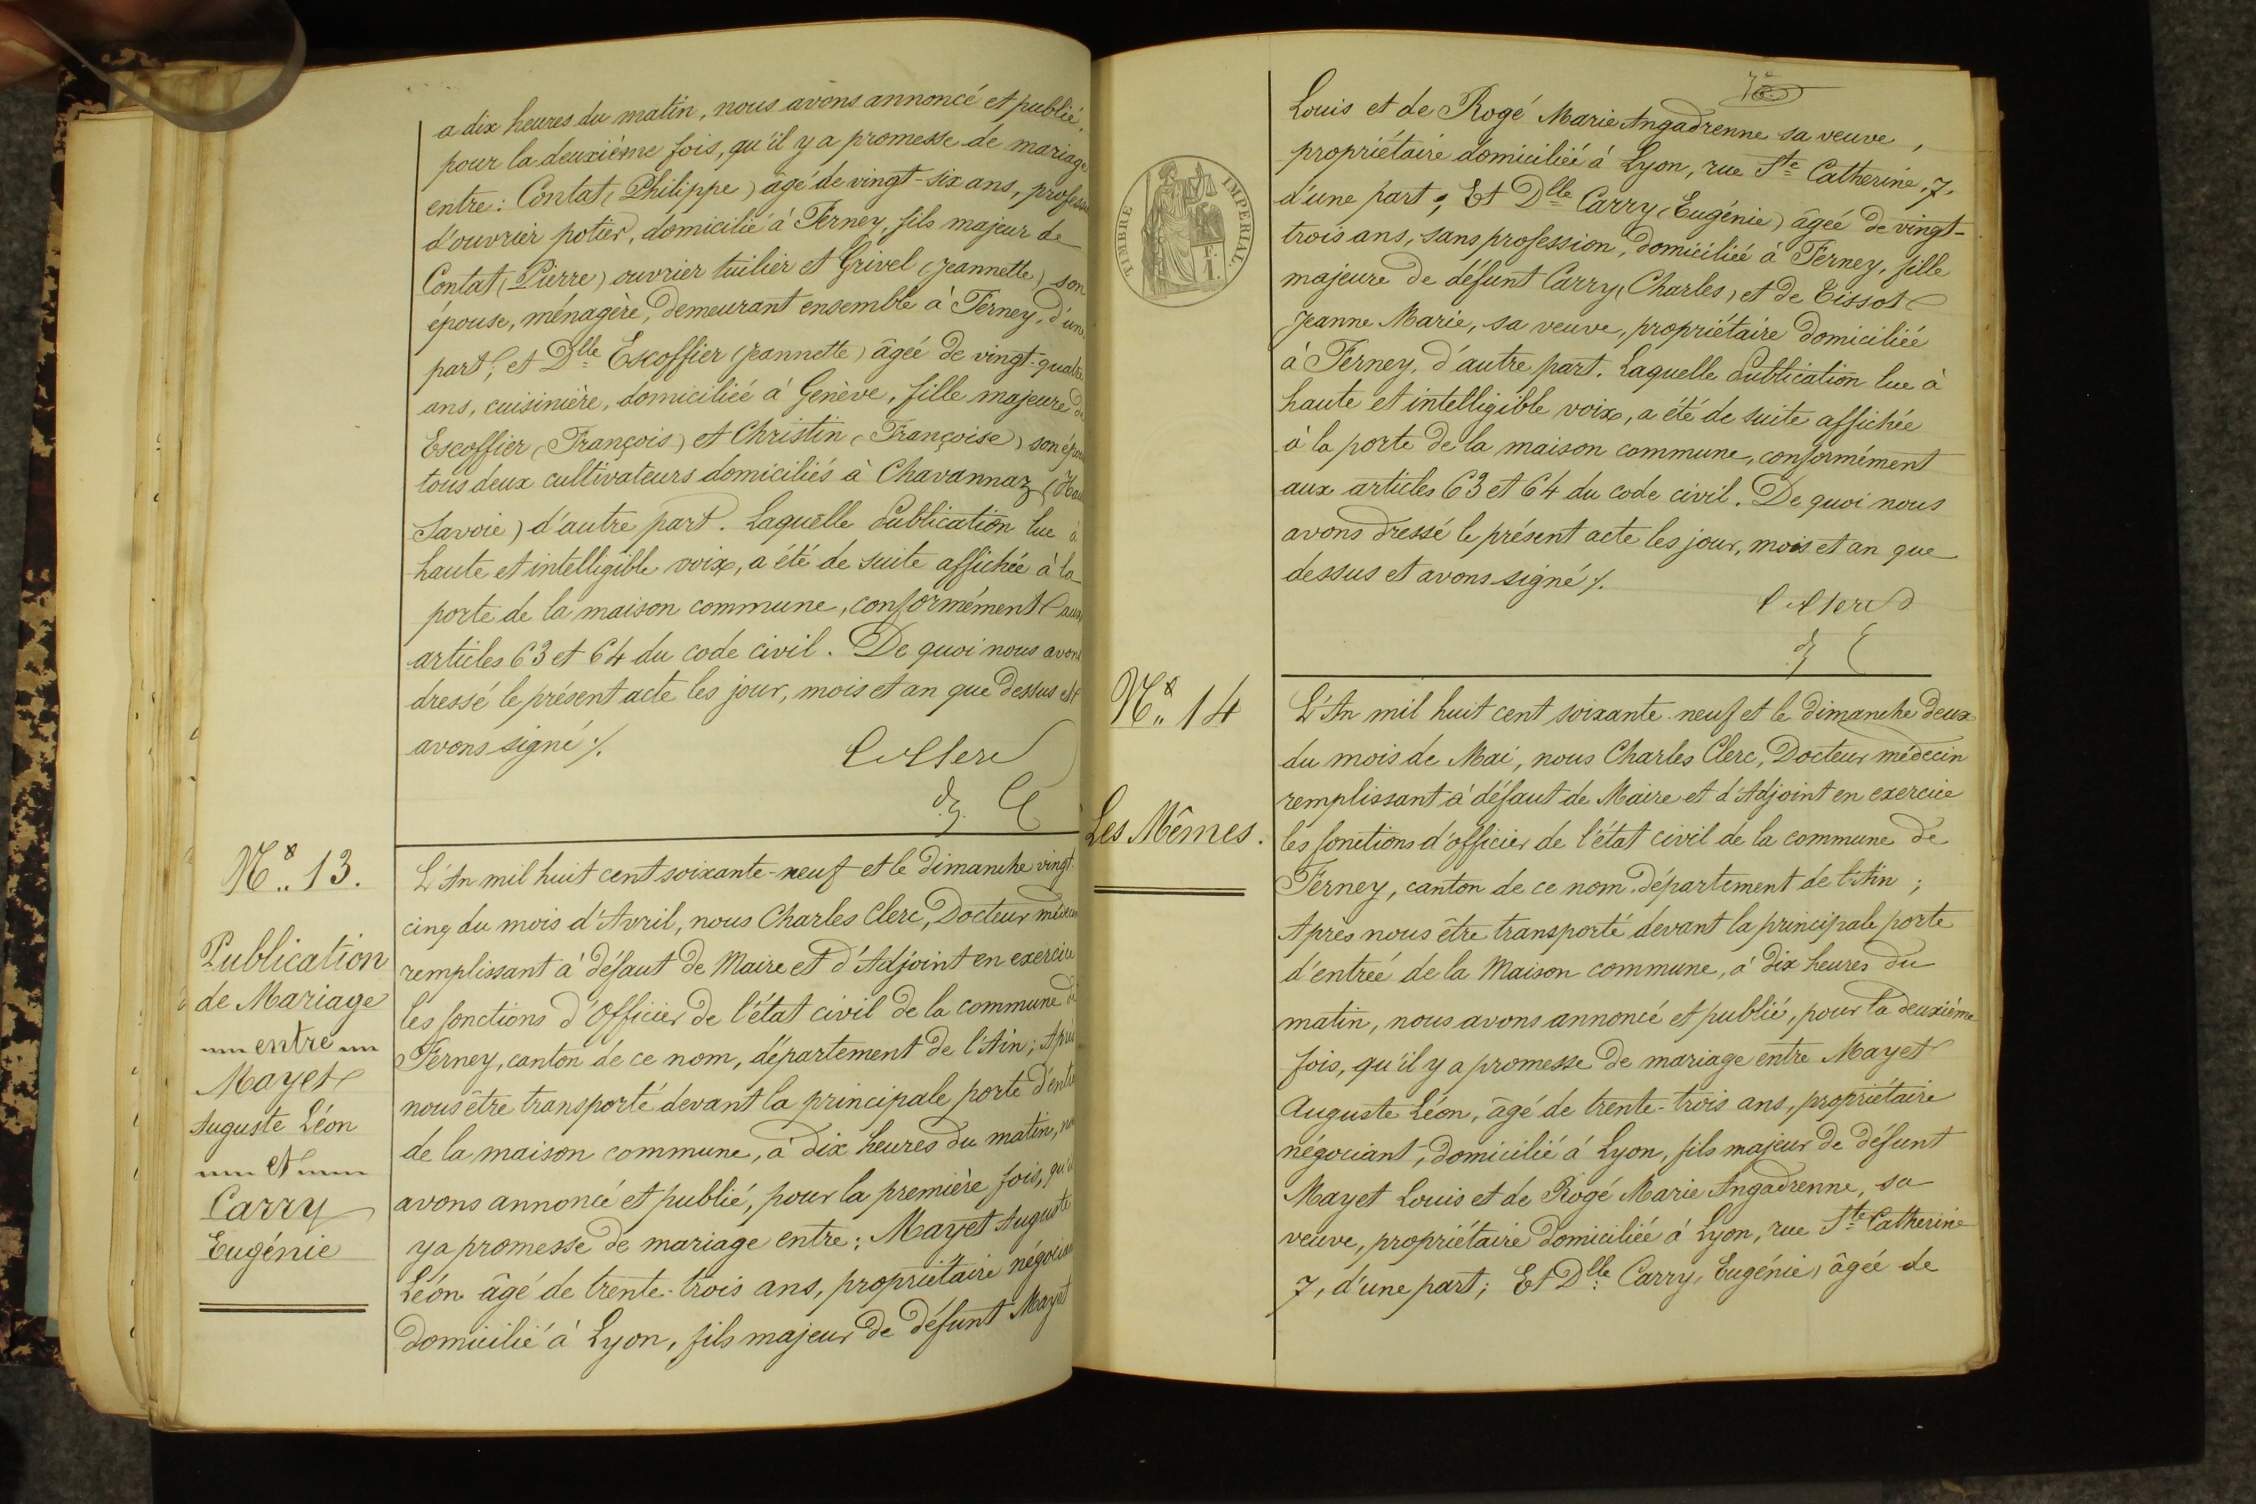 a dix heures du matin, nous avons annoncé et publié,
pour la deuxième fois, qu'il y a promesse de mariage
entre : Contat (Philippe) âgé de vingt-six ans, profess
d'ouvrier potier, domicilié à Ferney, fils majeur de
Contat (Pierre) ouvrier tuilier et Grivel (Jeannette) son
épouse, ménagère, demeurant ensemble à Ferney, d'une
part; et Dlle Escoffier (Jeannette) âgée de vingt-quatre
ans, cuisinière, domiciliée à Genève, fille majeure de
Escoffier (François) et Christin (Françoise) son épou
tous deux cultivateurs domiciliés à Chavannaz (Hau
Savoie) d'autre part. Laquelle Publication lue à
haute et intelligible voix, a été de suite affichée à la
porte de la maison commune, conformément aux
articles 63 et 64 du code civil. De quoi nous avons
dressé le présent acte les jour, mois et an que dessus et
avons signé ⁒.
Clerc
N° 13.
Publication
de Mariage
entre
Mayet
Auguste Léon
et
Carry
Eugénie
L'An mil huit cent soixante-neuf et le dimanche vingt-
cinq du mois d'Avril, nous Charles Clerc, Docteur médecin
remplissant à défaut de Maire et d'Adjoint en exercice
les fonctions d'Officier de l'état civil de la commune de
Ferney, canton de ce nom, département de l'Ain; Après
nous être transporté devant la principale porte d'entré
de la maison commune, à dix heures du matin, nou
avons annoncé et publié, pour la première fois, qu'il
y a promesse de mariage entre : Mayet Auguste
Léon âgé de trente-trois ans, propriétaire négociant
domicilié à Lyon, fils majeur de défunt Mayet
Louis et de Rogé Marie Angadrenne sa veuve,
propriétaire domiciliée à Lyon, rue Ste Catherine, 7,
d'une part; Et Dlle Carry (Eugénie) âgée de vingt-
trois ans, sans profession, domiciliée à Ferney, fille
majeure de défunt Carry (Charles) et de Tissot
Jeanne Marie, sa veuve, propriétaire domiciliée
à Ferney, d'autre part. Laquelle Publication lue à
haute et intelligible voix, a été de suite affichée
à la porte de la maison commune, conformément
aux articles 63 et 64 du code civil. De quoi nous
avons dressé le présent acte les jour, mois et an que
dessus et avons signé ⁒.
Clerc
TIMBRE IMPERIAL
N° 14
Les Mêmes.
L'An mil huit cent soixante-neuf et le dimanche deux
du mois de Mai, nous Charles Clerc, Docteur médecin
remplissant à défaut de Maire et d'Adjoint en exercice
les fonctions d'officier de l'état civil de la commune de
Ferney, canton de ce nom, département de l'Ain;
Après nous être transporté devant la principale porte
d'entrée de la Maison commune, à dix heures du
matin, nous avons annoncé et publié, pour la deuxième
fois, qu'il y a promesse de mariage entre Mayet
Auguste Léon, âgé de trente-trois ans, propriétaire
négociant, domicilié à Lyon, fils majeur de défunt
Mayet Louis et de Rogé Marie Angadrenne, sa
veuve, propriétaire domiciliée à Lyon, rue Ste Catherine
7, d'une part; Et Dlle Carry (Eugénie) âgée de